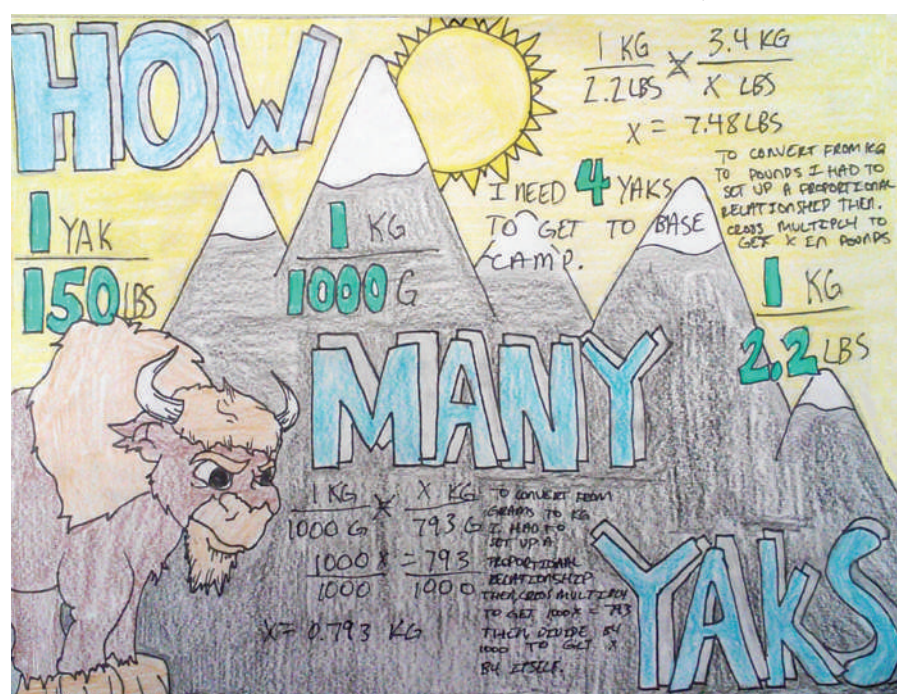 HOW
MANY
YAKS
1 YAK
150 LBS
1 KG
1000 G
1 KG × 3.4 KG
2.2 LBS X LBS
X = 7.48 LBS
TO CONVERT FROM KG
TO POUNDS I HAD TO
SET UP A PROPORTIONAL
RELATIONSHIP THEN.
CROSS MULTIPLY TO
GET X IN POUNDS
I NEED 4 YAKS
TO GET TO BASE
CAMP.
1 KG
2.2 LBS
1 KG × X KG
1000 G 793 G
1000 X = 793
1000 1000
X = 0.793 KG
TO CONVERT FROM
GRAMS TO KG
I HAD TO
SET UP A
PROPORTIONAL
RELATIONSHIP
THEN CROSS MULTIPLY
TO GET 1000X = 793
THEN DIVIDE BY
1000 TO GET X
BY ITSELF.